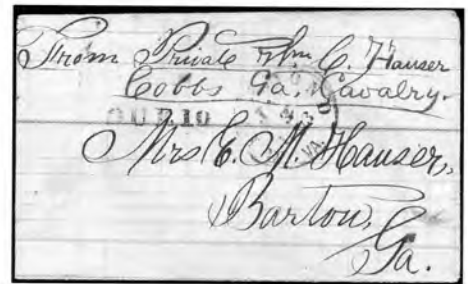 From Private Wm. C. Hauser
Cobbs Ga. Cavalry.
DUE 10
VA.
Mrs C. M. Hauser,
Barton,
Ga.